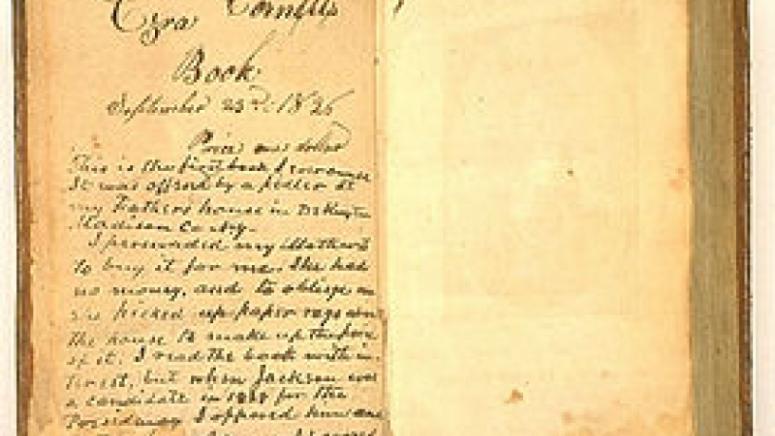 Ezra Cornell's
Book
September 23rd 1826
Price one dollar
This is the first book I ever owned
It was offered by a pedler at
my Fathers house in DeRuyter
Madison County.
I persuaded my Mother
to buy it for me. She had
no money, and to oblige me
she picked up paper rags
the house to make up the price
of it. I read the book with in-
terest, but when Jackson was
a candidate in 1828 for the
Presidency I opposed him and